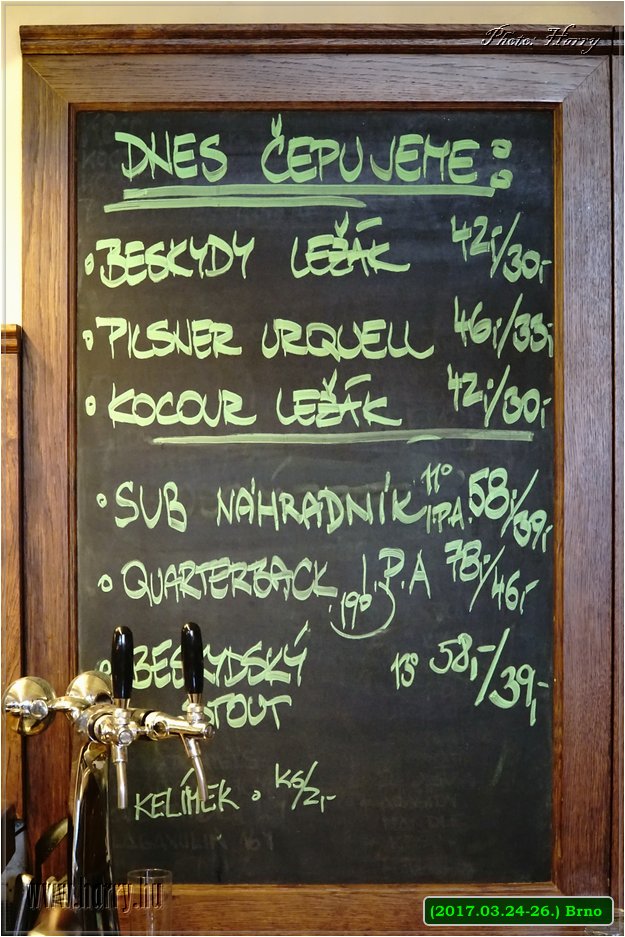 Photo: Harry
DNES ČEPUJEME:
• BESKYDY LEŽÁK 42,-/30,-
• PILSNER URQUELL 46,-/33,-
• KOCOUR LEŽÁK 42,-/30,-
• SUB NÁHRADNÍK 11° I.P.A. 58,-/39,-
• QUARTERBACK 19° I.P.A 78,-/46,-
• BESKYDSKÝ 13° 58,-/39,-
STOUT
KELÍMEK • KS/2,-
www.harry.hu
(2017.03.24-26.) Brno